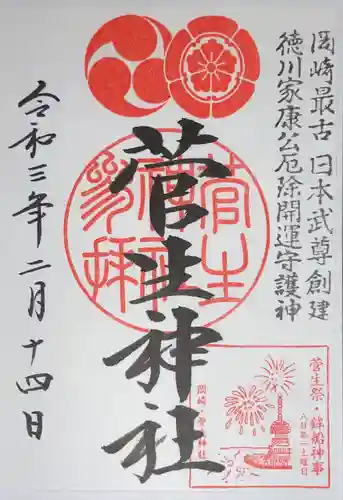 岡崎最古 日本武尊創建
徳川家康公厄除開運守護神
菅生神社
菅生神社参拝
令和三年二月十四日
菅生祭・鉾船神事
八月第一土曜日
岡崎・菅生神社